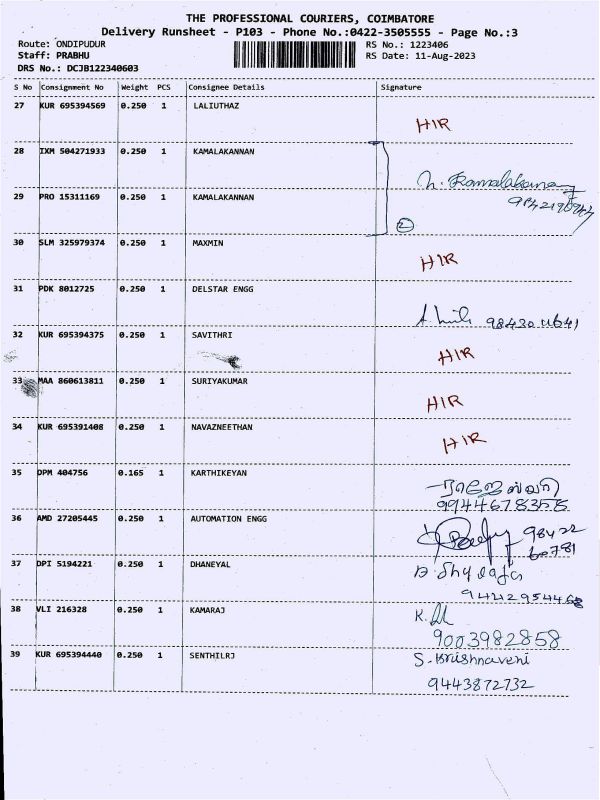 THE PROFESSIONAL COURIERS, COIMBATORE
Delivery Runsheet - P103 - Phone No.:0422-3505555 - Page No.:3
Route: ONDIPUDUR RS No.: 1223406
Staff: PRABHU RS Date: 11-Aug-2023
DRS No.: DCJB122340603
S No Consignment No Weight PCS Consignee Details Signature
27 KUR 695394569 0.250 1 LALIUTHAZ
HIR
28 IXM 504271933 0.250 1 KAMALAKANNAN
29 PRO 15311169 0.250 1 KAMALAKANNAN
2
30 SLM 325979374 0.250 1 MAXMIN
HIR
31 PDK 8012725 0.250 1 DELSTAR ENGG
32 KUR 695394375 0.250 1 SAVITHRI
HIR
33 MAA 860613811 0.250 1 SURIYAKUMAR
HIR
34 KUR 695391408 0.250 1 NAVAZNEETHAN
HIR
35 DPM 404756 0.165 1 KARTHIKEYAN
ராஜேஸ்வரி
9944678358
36 AMD 27205445 0.250 1 AUTOMATION ENGG
98422
60781
37 DPI 5194221 0.250 1 DHANEYAL
38 VLI 216328 0.250 1 KAMARAJ
9003982858
39 KUR 695394440 0.250 1 SENTHILRJ
S. Krishnaveni
9443872732